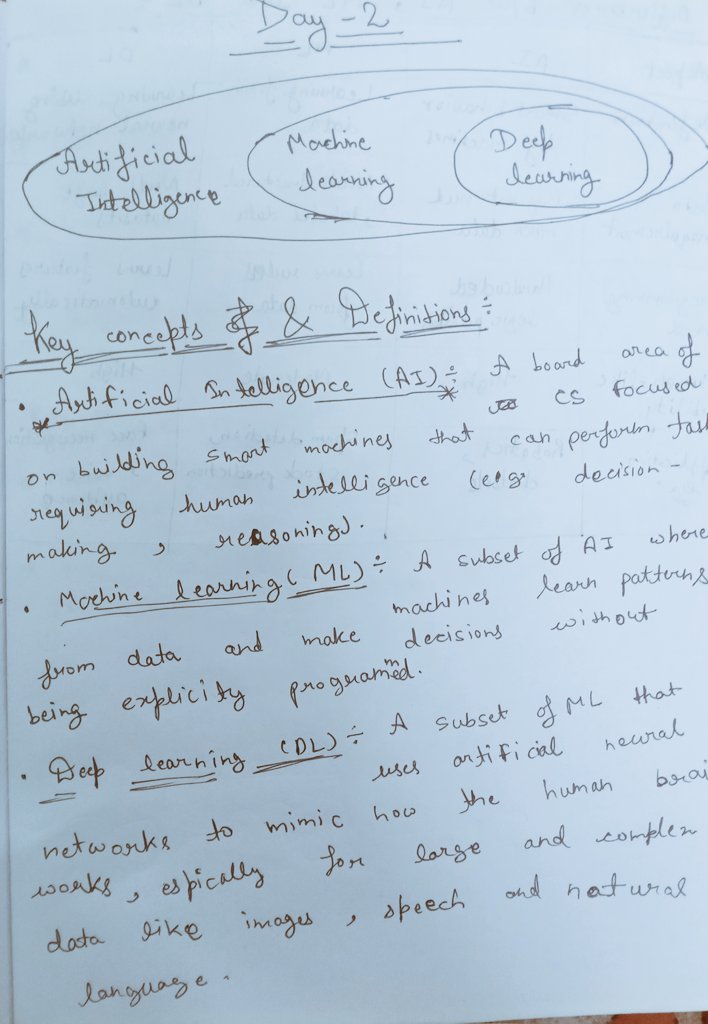 Day - 2
Artificial Intelligence
Machine learning
Deep learning
Key concepts & Definitions :
• Artificial Intelligence (AI) : A board area of
* * CS focused
on building smart machines that can perform task
requiring human intelligence (e.g. decision -
making , reasoning).
• Machine learning ( ML) : A subset of AI where
machines learn patterns
from data and make decisions without
being explicity programmed.
• Deep learning (DL) : A subset of ML that
uses artificial neural
networks to mimic how the human brai
works , espically for large and complex
data like images , speech and natural
language .